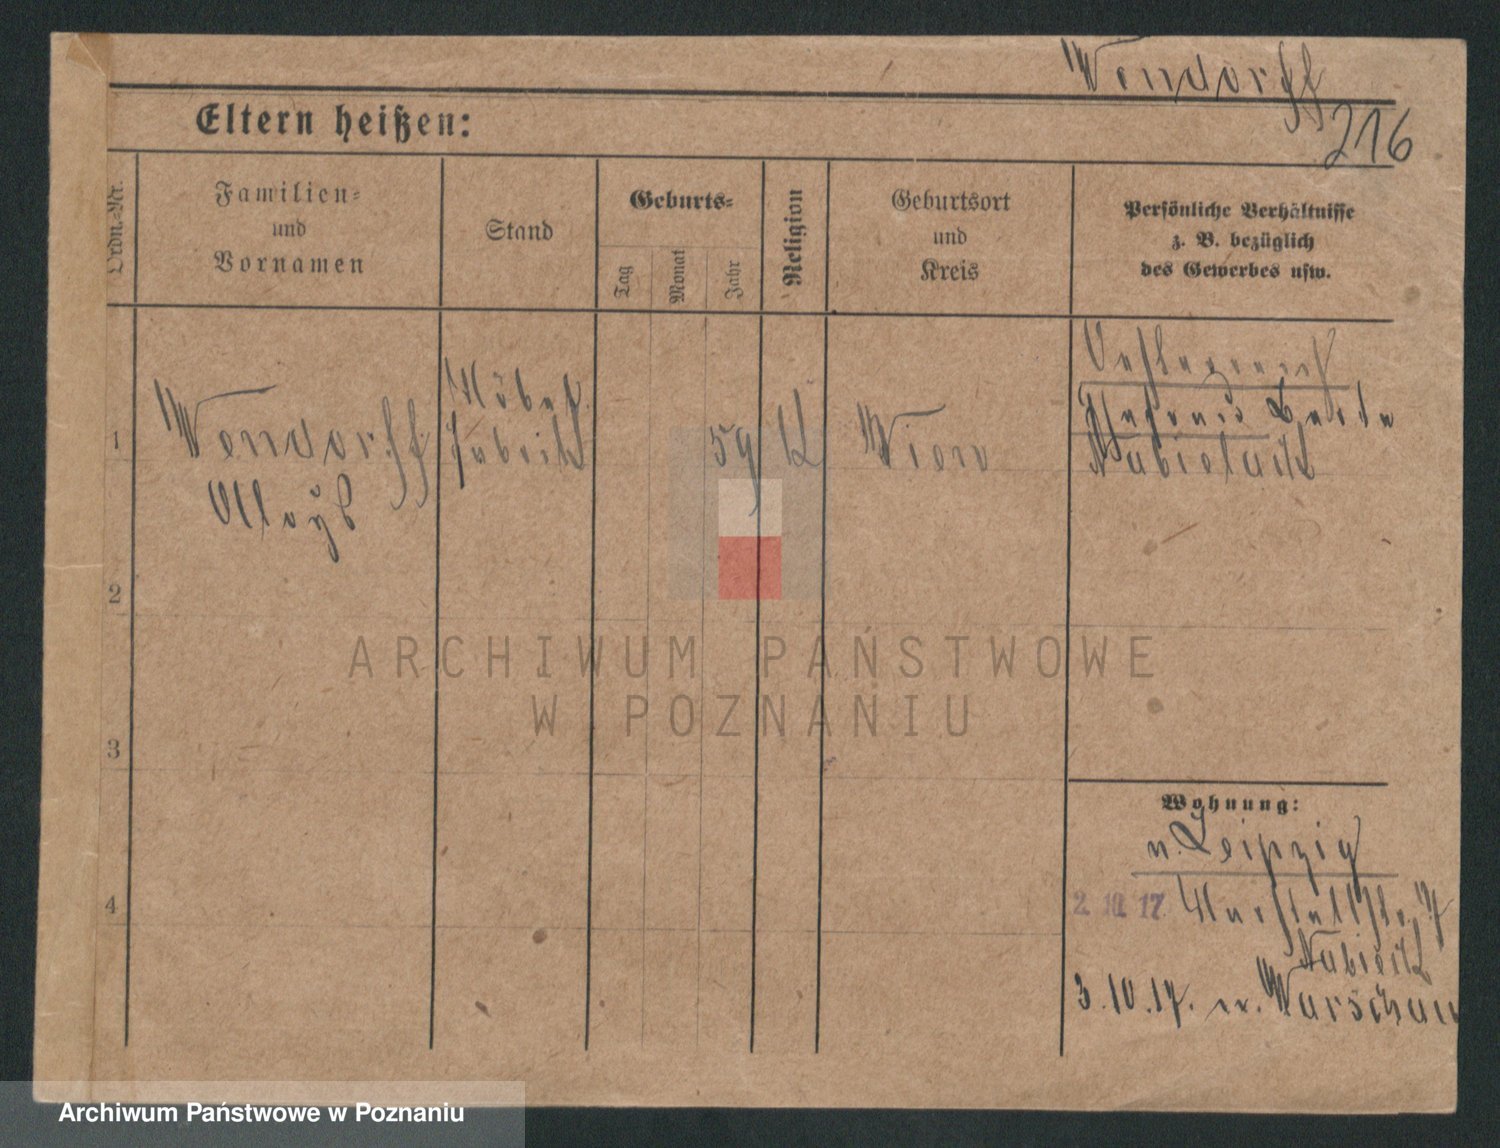 Wendorff
216
Eltern heißen:
Ordn.-Nr.
Familien-
und
Vornamen
Stand
Geburts-
Tag
Monat
Jahr
Religion
Geburtsort
und
Kreis
Persönliche Verhältnisse
z. B. bezüglich
des Gewerbes usw.
1
Wendorff
Aloys
Möbel
fabrik
59
k
Wien
Oesterreich
2
3
4
Wohnung:
n. Leipzig
2. 10. 17
3. 10. 17. n. Warschau
ARCHIWUM PAŃSTWOWE
W POZNANIU
Archiwum Państwowe w Poznaniu